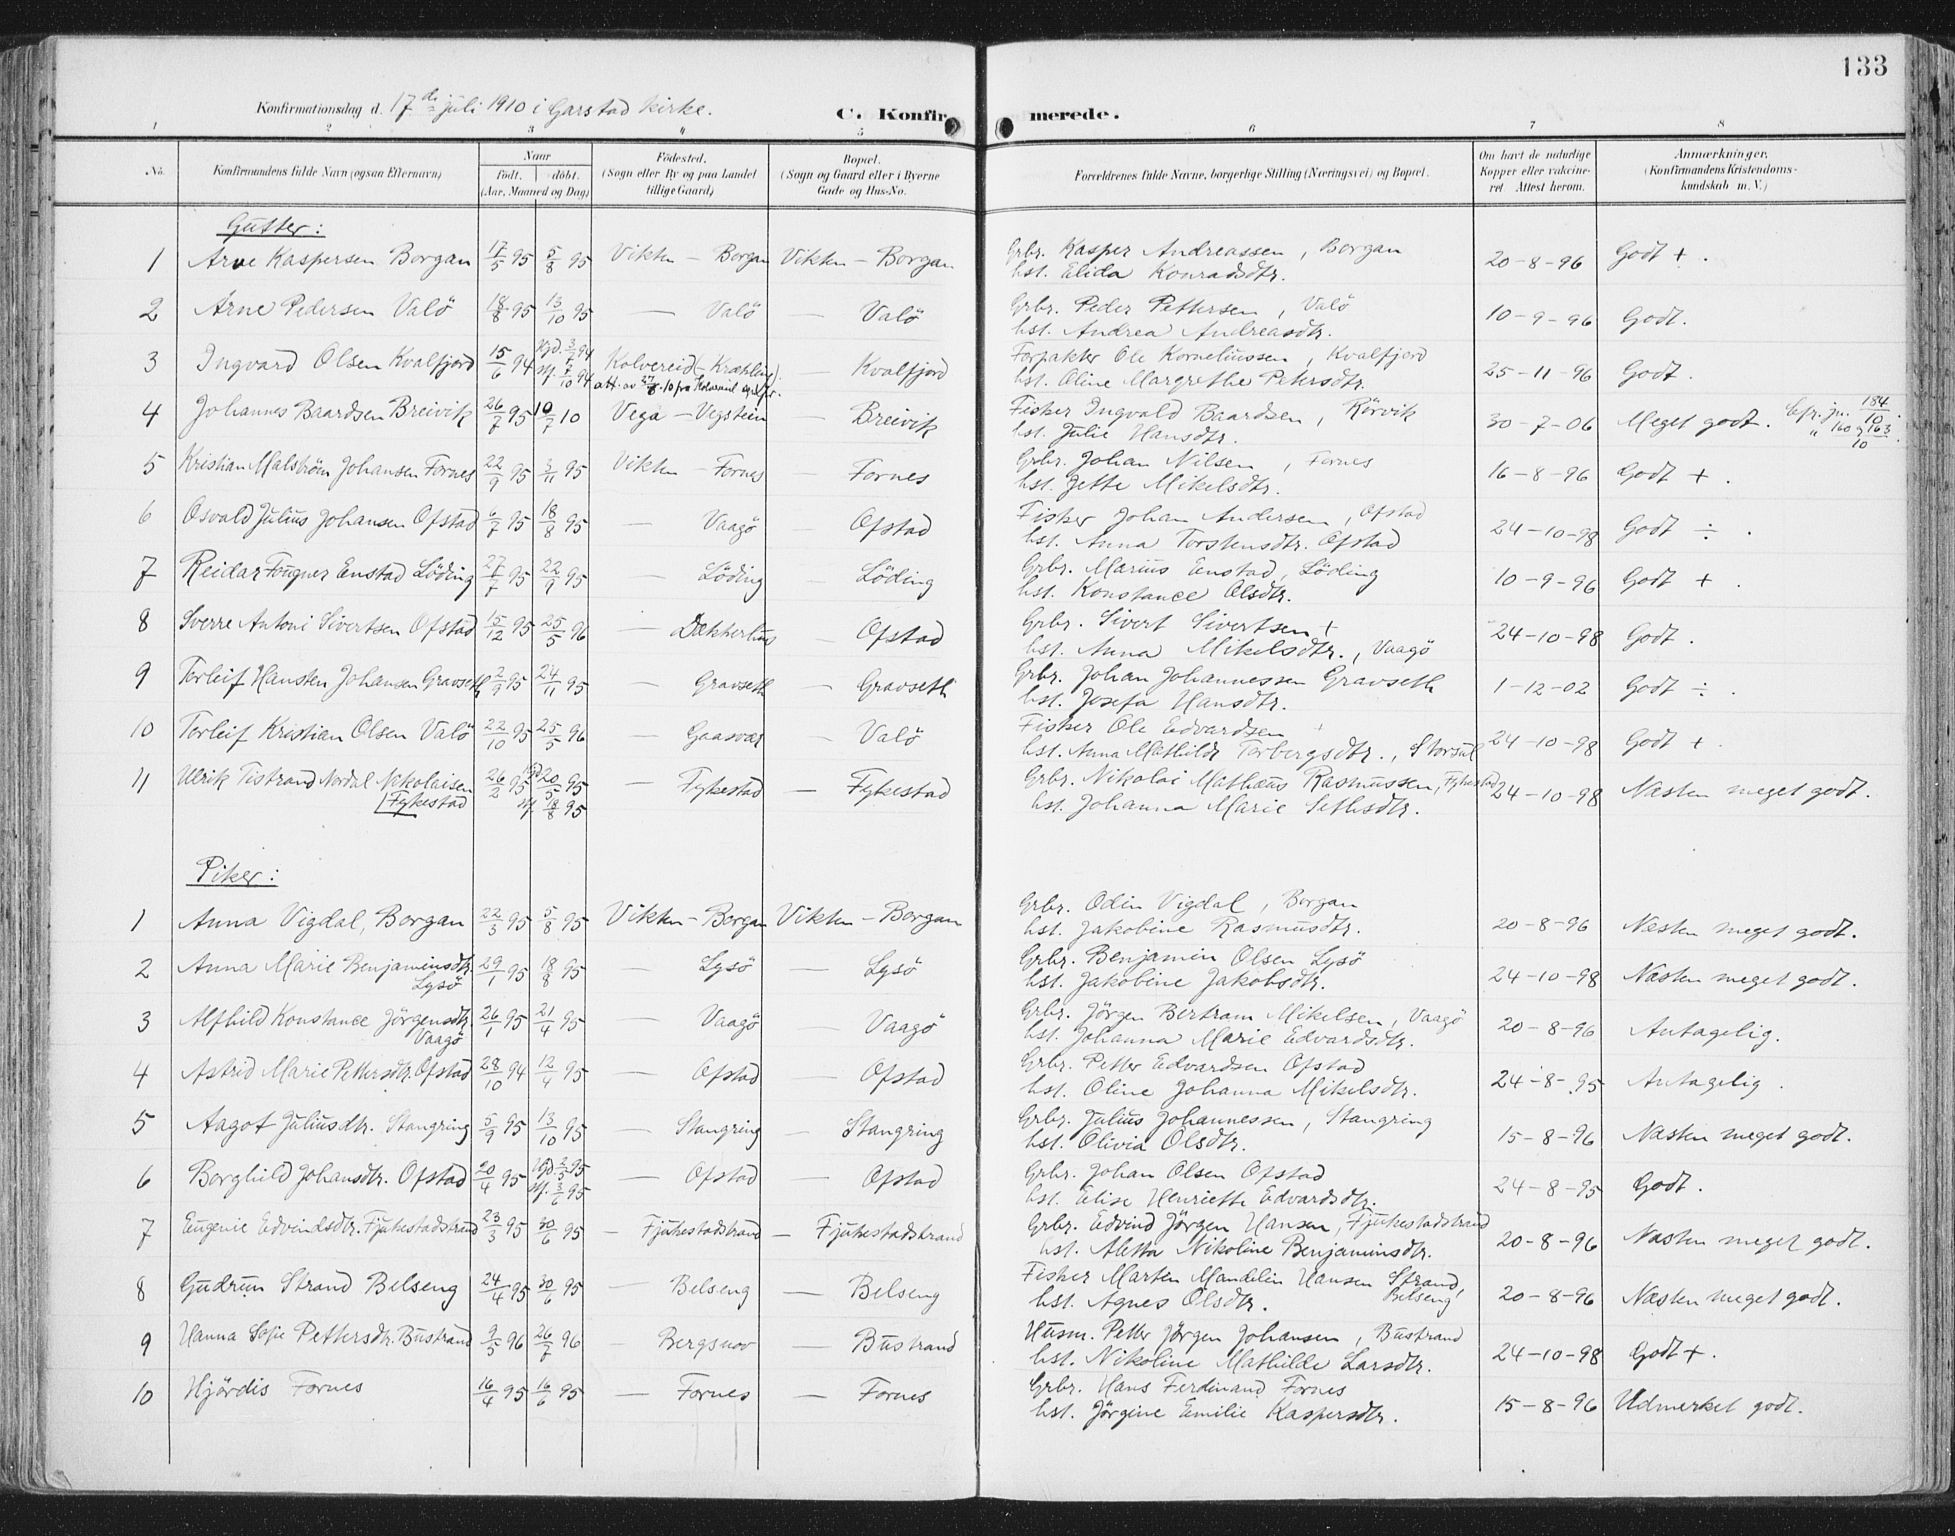 133
Konfirmationsdag d. 17de juli 1910 i Garstad kirke.
C. Konfirmerede.
1 2 3 " 5 6 7 8
No. Konfirmandens fulde Navn (ogsaa Efternavn) Naar født. døbt. (Aar, Maaned og Dag) Fødested. (Sogn eller By og paa Landet tillige Gaard) Bopæl. (Sogn og Gaard eller i Byerne Gade og Hus-No. Forældrenes fulde Navne, borgerlige Stilling (Næringsvei) og Bopæl. Om havt de naturlige Kopper eller vaccineret. Attest herom. Anmærkninger. (Konfirmandens Kristendomskundskab m. V.)
Gutter:
1 Arve Kaspersen Borgan 17/5 95 5/8 95 Vikten – Borgan Vikten – Borgan Grbr. Kasper Andreassen, Borgan hst. Elida Konradsdtr. 20-8-96 Godt + .
2 Arne Pedersen Valö 18/8 95 13/10 95 — Valö — Valö Grbr. Peder Pettersen, Valö hst. Andrea Andreasdtr. 10-9-96 Godt.
3 Ingvard Olsen Kvalfjord 15/6 94 hjd. 3/7 94 stf. 7/10 94 Kolvereid – att. av 10 fra Kolvereid — Kvalfjord Forpakter Ole Korneliussen, Kvalfjord hst. Oline Margrethe Petersdtr. 25-11-96 Godt.
4 Johannes Baardsen Breivik 26/7 95 10/7 10 Vega – Vegstein — Breivik Fisker Ingvald Baardsen, Rörvik hst. Julie Hansdtr. 30-7-06 Meget godt. Cfr. jn. 184/10 " 160 og 163/10.
5 Kristian Malström Johansen Fornes 22/9 95 3/11 95 Vikten – Fornes Fornes Grbr. Johan Nilsen, Fornes hst. Jette Mikelsdtr. 16-8-96 Godt + .
6 Osvald Julius Johansen Ofstad 6/7 95 18/8 95 — Vaagö Ofstad Fisker Johan Andersen, Ofstad hst. Anna Torstensdtr. Ofstad 24-10-98 Godt ÷ .
7 Reidar Fougner Enstad Löding 27/7 95 22/9 95 — Löding — Löding Grbr. Marius Enstad, Löding hst. Konstance Olsdtr. 10-9-96 Godt + .
8 Sverre Antoni Sivertsen Ofstad 15/12 95 25/5 96 — Dekkerhus — Ofstad Grbr. Sivert Sivertsen + hst. Anna Mikelsdtr., Vaagö 24-10-98 Godt.
9 Torleif Hansten Johansen Gravseth 2/9 95 24/11 95 — Gravseth — Gravseth Grbr. Johan Johannessen Gravseth hst. Josefa Hansdtr. 1-12-02 Godt ÷ .
10 Torleif Kristian Olsen Valö 22/10 95 25/5 96 — Gaasvær — Valö Fisker Ole Edvardsen hst. Anna Mathilde Torbergsdtr., 24-10-98 Godt + .
11 Ulrik Tistrand Nordal Nikolaisen Fykestad 26/2 95 hjd 20/5 95 stf. 18/8 95 — Fykestad — Fykestad Grbr. Nikolai Mathæus Rasmussen, Fykestad hst. Johanna Marie Sethsdtr. 24-10-98 Næsten meget godt.
Piker:
1 Anna Vigdal, Borgan 22/3 95 5/8 95 Vikten – Borgan Vikten – Borgan Grbr. Odin Vigdal, Borgan hst. Jakobine Rasmusdtr. 20-8-96 Næsten meget godt.
2 Anna Marie Benjaminsdtr. Lysö 29/1 95 18/8 95 — Lysö — Lysö Grbr. Benjamin Olsen Lysö hst. Jakobine Jakobsdtr. 24-10-98 Næsten meget godt.
3 Alfhild Konstance Jörgensdtr. Vaagö 26/1 95 21/4 95 — Vaagö — Vaagö Grbr. Jörgen Bertram Mikelsen, Vaagö hst. Johanna Marie Edvardsdtr. 20-8-96 Antagelig.
4 Astrid Marie Pettersdtr. Ofstad 28/10 94 12/4 95 — Ofstad — Ofstad Grbr. Petter Edvardsen Ofstad hst. Oline Johanna Mikelsdtr. 24-8-95 Antagelig.
5 Aagot Juliusdtr. Stangring 5/9 95 13/10 95 — Stangring — Stangring Grbr. Julius Johannessen, Stangring hst. Olivia Olsdtr. 15-8-96 Næsten meget godt.
6 Borghild Johansdtr. Ofstad 20/4 95 hjd. 2/5 95 stf. 3/6 95 — Ofstad — Ofstad Grbr. Johan Olsen Ofstad hst. Elise Henriette Edvardsdtr. 24-8-95 Godt.
7 Eugenie Edvindsdtr. Fjukestadstrand 23/3 95 30/6 95 — Fjukestadstrand — Fjukestadstrand Grbr. Edvind Jörgen Hansen, Fjukestadstrand hst. Aletta Nikoline Benjaminsdtr. 20-8-96 Næsten meget godt.
8 Gudrun Strand Belseng 24/4 95 30/6 95 — Belseng — Belseng Fisker Marten Mandelin Hansen Strand, Belseng hst. Agnes Olsdtr. 20-8-96 Næsten meget godt.
9 Hanna Sofie Pettersdtr. Bustrand 9/5 96 26/7 96 — Bergsnov — Bustrand Husm. Petter Jörgen Johansen, Bustrand hst. Nikoline Mathilde Larsdtr. 24-10-98 Godt + .
10 Hjördis Fornes 16/4 95 16/6 95 — Fornes — Fornes Grbr. Hans Ferdinand Fornes hst. Jörgine Emilie Kaspersdtr. 15-8-96 Udmerket godt.